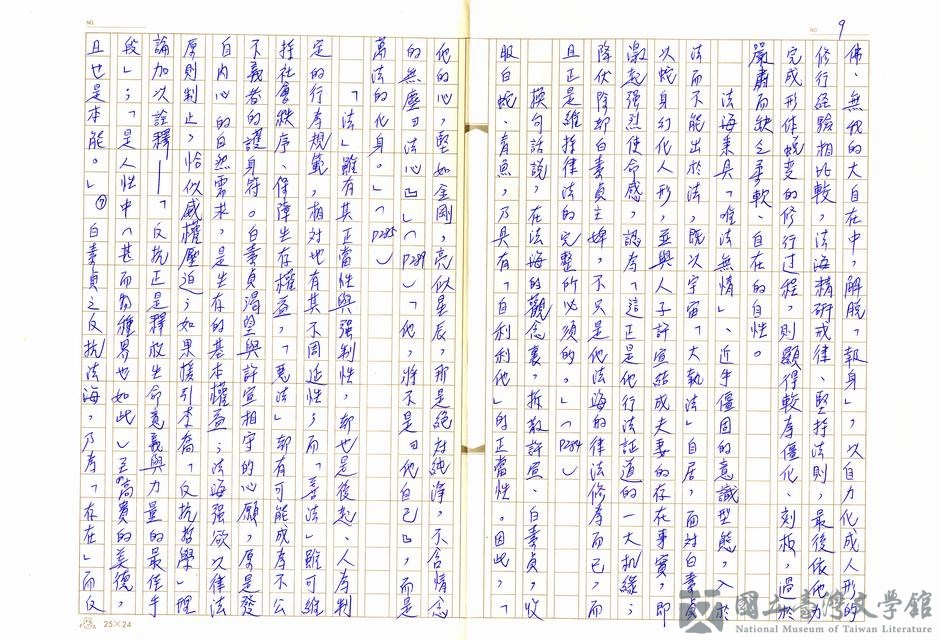 NO.
NO. 9
佛、無我的大自在中,解脫「報身」,以自力化成人形的
修行經驗相比較,法海精研戒律、堅持法則,最後依他力
完成形作蛻變的修行過程,則顯得較為僵化、刻板,過於
嚴肅而缺乏柔軟、自在的自性。
法海秉具「唯法無情」、近乎僵固的意識型態,入於
法而不能出於法,既以宇宙「大執法」自居,面對白素貞
以蛇身幻化人形,並與人子許宣結成夫妻的存在事實,即
激起强烈使命感,認為「這正是他行法証道的一大机緣;
降伏除却白素貞主婢,不只是他法海的律法修為而已,而
且正是維持律法的完整所必須的。」(P284)
換句話說,在法海的觀念裏,拆散許宣、白素貞,收
服白蛇、青魚,乃具有「自利利他」的正當性。因此,「
他的心,堅如金剛,亮似星辰,那是絕對純淨,不含情念
的無塵『法心』」(P289)「他,將不是『他自己』,而是
萬法的化身。」(P285)
「法」雖有其正當性與强制性,却也是後起、人為制
定的行為規範,相對地有其不周延性;而「善法」雖可維
持社會秩序、保障生存權益,「惡法」却有可能成為不公
不義者的護身符。白素貞渴望與許宣相守的心願,原是發
自內心的自然需求,是生存的基本權益;法海强欲以律法
原則制止,恰似威權壓迫;如果援引李喬「反抗哲學」理
論加以詮釋——「反抗正是釋放生命意義與力量的最佳手
段」;「是人性中(甚而物種界也如此)至高貴的美德,
且也是本能。」⑦白素貞之反抗法海,乃為「存在」而反
25×24
國立臺灣文學館
National Museum of Taiwan Literature